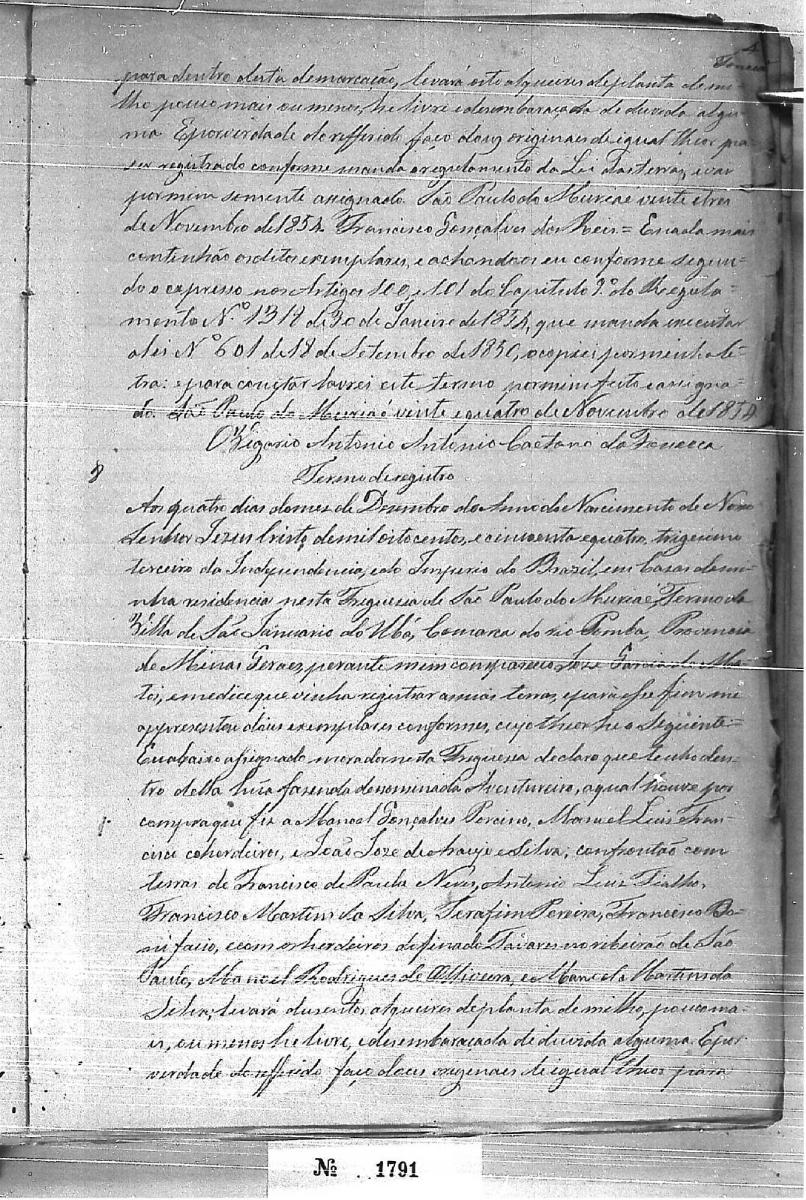 4
Fonseca
para dentro desta demarcação, levará oito alqueires de planta de mi-
lho pouco mais ou menos, he livre e desembaraçada de duvida algu-
ma E por verdade do refferido faço dous originaes de igual theor pa
ser registrado conforme manda o regulamento da Lei das terras, e vai
por mim somente assignado. São Paulo do Muriaé vinte e tres
de Novembro de 1854. Francisco Gonçalves dos Reis = E nada mais
continhão os ditos exemplares, e achando os eu conforme segun-
do o expresso nos Artigos 100, e 101 do Capitulo 9º do Regula-
mento Nº 1318 de 30 de Janeiro de 1854, que manda executar
a lei Nº 601 de 18 de Setembro de 1850, o copiei por minha le-
tra: e para constar lavrei este termo por mim feito e assigna-
do. São Paulo do Muriaé vinte e quatro de Novembro de 1854
O Vigario Antonio Antonio Caetano da Fonseca
8
Termo de registro
Aos quatro dias do mez de Dezembro do Anno do Nascimento de Nosso
Senhor Jezus Cristo, de mil oito centos, e cincoenta e quatro, trigesimo
terceiro da Independencia, e do Imperio do Brazil, em Casas de mi-
nha residencia nesta Freguesia de São Paulo do Muriaé, Termo da
Villa de São Januario do Ubá, Comarca do rio Pomba, Provincia
de Minas Geraes, perante mim compareceo Joze Garcia de Ma-
tos, e me dice que vinha registrar as suas terras, e para esse fim me
appresentou dous exemplares conformes, cujo theor he o Seguinte =
Eu abaixo assignado morador nesta Freguesia declaro que tenho den-
tro della hũa fazenda denominada Aventureiro, a qual houve por
compra que fiz a Manoel Gonçalves Porcino, Manoel Luis Fran-
cisco coherdeiros, e João Joze de Araujo e Silva; confrontão com
terras de Francisco de Paula Neves, Antonio Luiz Fialho,
Francisco Martins da Silva, Serafim Pereira, Francisco Bo-
nifacio, e com os herdeiros do finado Tavares no ribeirão de São
Paulo, Manoel Rodrigues de Olliveira, e Manoel Martins da
Silva; levará dusentos alqueires de planta de milho, pouco ma-
is, ou menos he livre, e desembaraçada de duvida alguma. E por
verdade do refferido faço dous originaes de igual theor para
Nº 1791